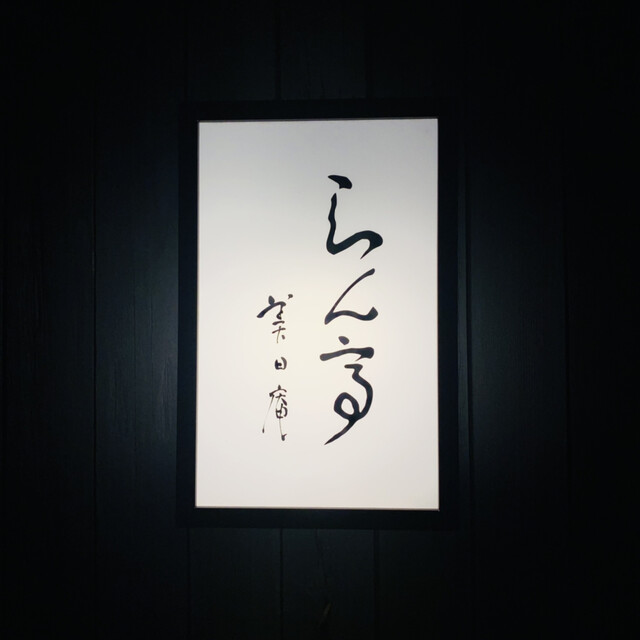 らん亭
美日庵